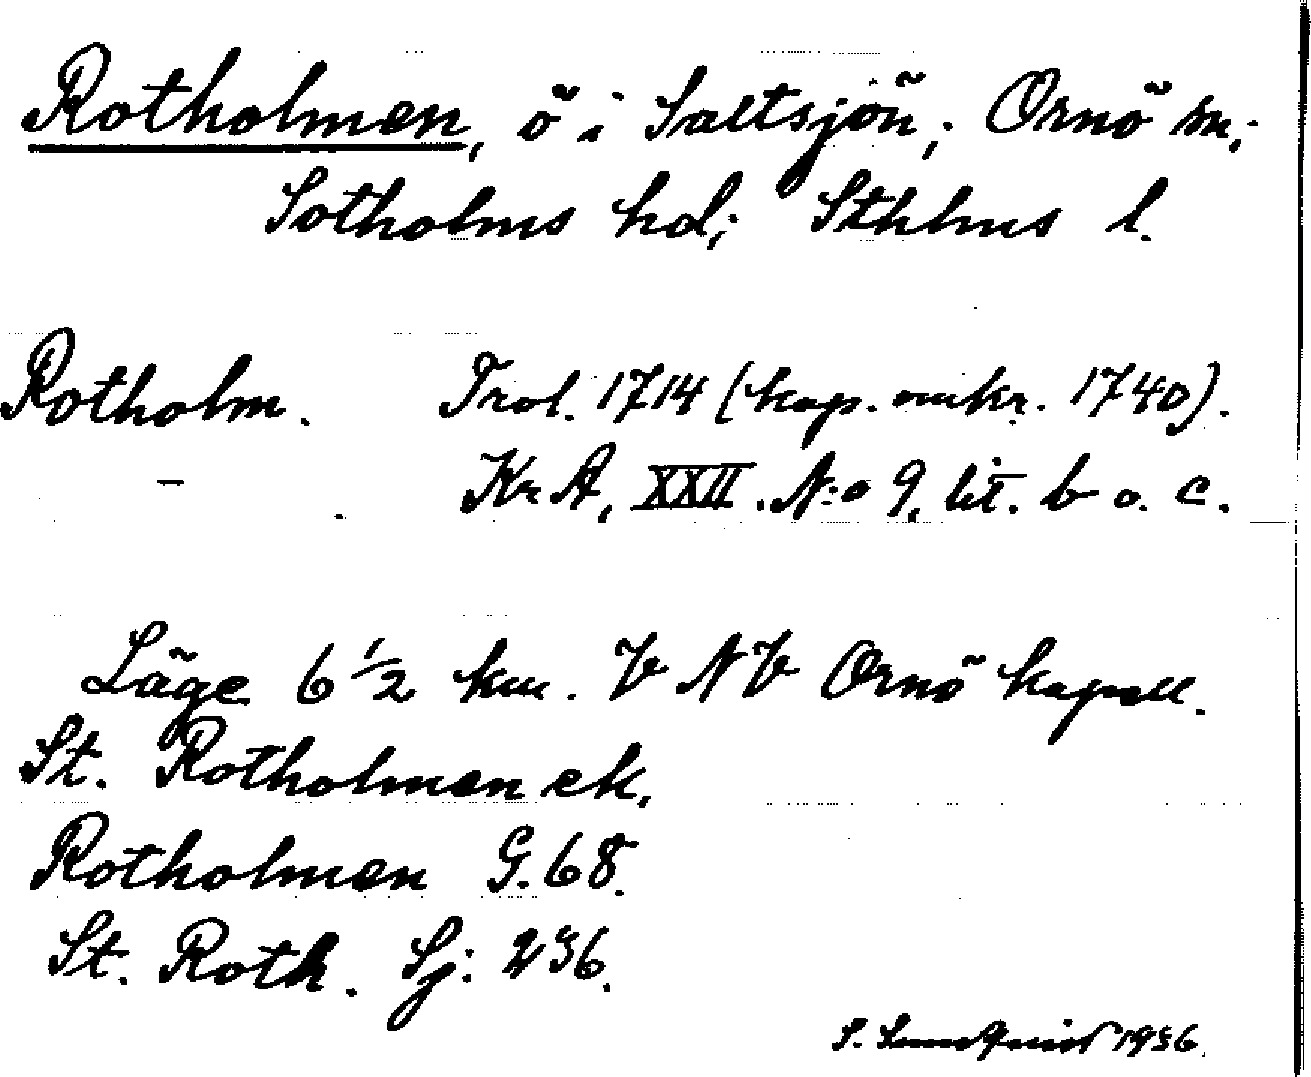 Rotholmen, ö i Saltsjön; Ornö sn;
Sotholms hd; Sthlms l.
Rotholm. Trol. 1714 (kop. omkr. 1740).
— KrA, XXII. N:o 9, lit. b o. c.
Läge 6 1/2 km. V NV Ornö kapell.
St. Rotholmen ek,
Rotholmen G. 68.
St. Roth. Sj: 236.
S. Lundquist 1936.